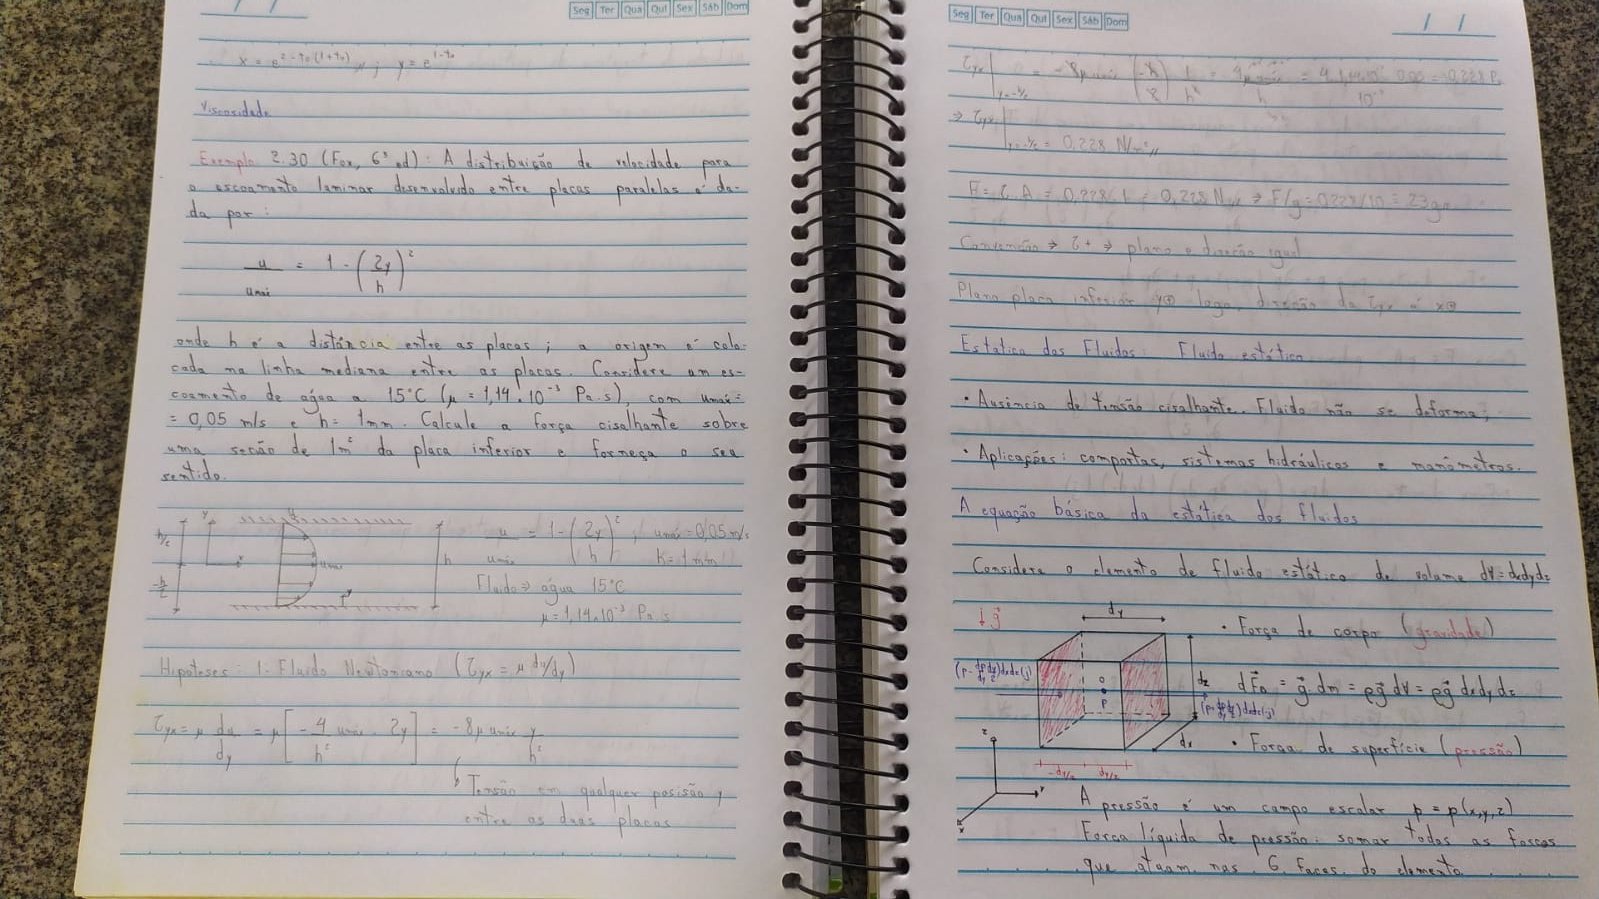 Seg Ter Qua Qui Sex Sáb Dom
x = e^{2-t₀(1+t₀)} ; y = e^{1-t₀}
Viscosidade
Exemplo 2.30 (Fox, 6ª ed): A distribuição de velocidade para
o escoamento laminar desenvolvido entre placas paralelas é da-
da por:
u/umáx = 1 - (2y/h)²
onde h é a distância entre as placas; a origem é colo-
cada na linha mediana entre as placas. Considere um es-
coamento de água a 15°C (μ = 1,14.10⁻³ Pa.s), com umáx =
= 0,05 m/s e h = 1mm. Calcule a força cisalhante sobre
uma seção de 1m² da placa inferior e forneça o seu
sentido.
y x h/2 -h/2 umáx h
u/umáx = 1 - (2y/h)² ; umáx = 0,05 m/s
h = 1 mm
Fluido ⇒ água 15°C
μ = 1,14.10⁻³ Pa.s
Hipóteses: 1- Fluido Newtoniano (τyx = μ du/dy)
τyx = μ du/dy = μ[-4/h² umáx . 2y] = -8μ umáx y/h²
Tensão em qualquer posisão y
entre as duas placas
Seg Ter Qua Qui Sex Sáb Dom
/ /
τyx|y=-h/2 = -8μ umáx (-h/2) 1/h² = 4μ umáx/h
⇒ τyx|y=-h/2 = 0,228 N/m²//
F = τ.A = 0,228.1 = 0,228 N ⇒ F/g = 0,228/10 = 23g
Convenção ⇒ τ+ ⇒ plano e direção igual
Plano placa inferior y⊕ logo, direção da τyx é x⊕
Estática dos Fluidos: Fluido estático
• Ausência de tensão cisalhante. Fluido não se deforma;
• Aplicações: comportas, sistemas hidráulicos e manômetros.
A equação básica da estática dos fluidos
Considere o elemento de fluido estático de volume dV = dxdydz
↓g⃗ dy
• Força de corpo (gravidade)
(p - ∂p/∂y dy/2)dxdz(j)
o p dz
dF⃗B = g⃗ dm = ρg⃗ dV = ρg⃗ dxdydz
dx
• Força de superfície (pressão)
-dy/2 dy/2
z y x
A pressão é um campo escalar p = p(x,y,z)
Força líquida de pressão: somar todas as forças
que atuam nas 6 faces do elemento